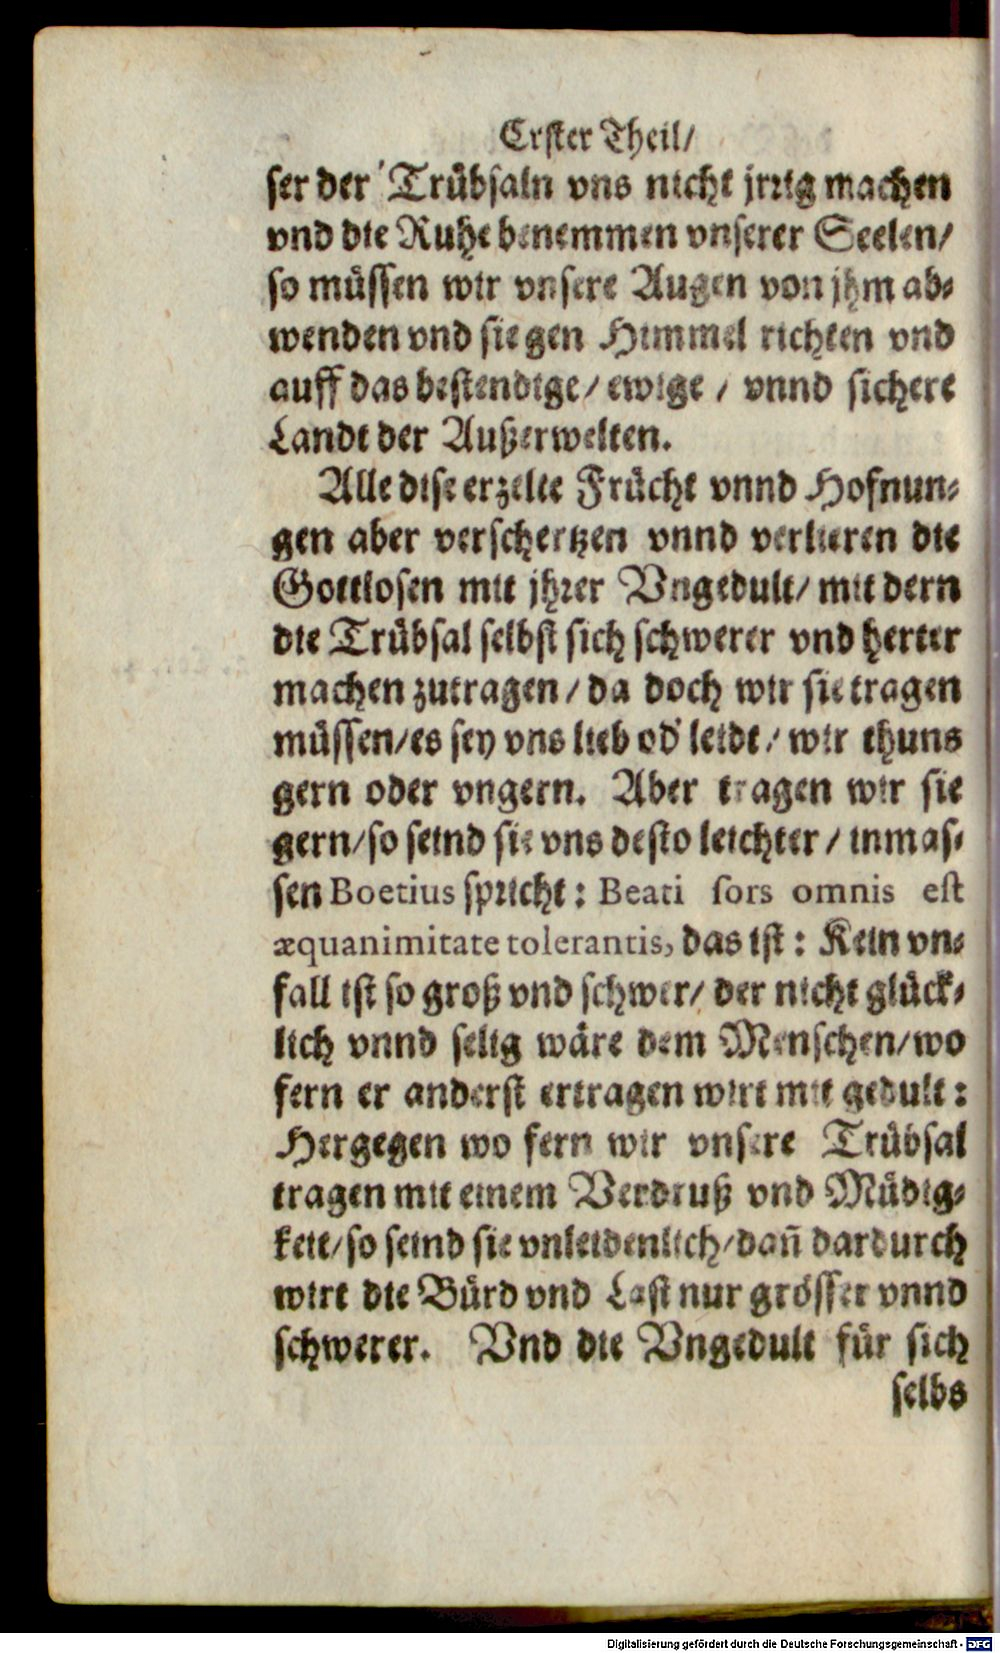 Erster Theil/
ser der Trübsaln vns nicht jrrig machen
vnd die Ruhe benemmen vnserer Seelen/
so müssen wir vnsere Augen von jhm ab-
wenden vnd sie gen Himmel richten vnd
auff das bestendige/ ewige / vnnd sichere
Landt der Außerwelten.
Alle dise erzelte Frücht vnnd Hofnun-
gen aber verschertzen vnnd verlieren die
Gottlosen mit jhrer Vngedult/ mit dern
die Trübsal selbst sich schwerer vnd herter
machen zutragen / da doch wir sie tragen
müssen/es sey vns lieb od' leidt / wir thuns
gern oder vngern. Aber tragen wir sie
gern/so seind sie vns desto leichter / inmas-
sen Boetius spricht: Beati sors omnis est
æquanimitate tolerantis, das ist: Kein vn-
fall ist so groß vnd schwer/ der nicht glück-
lich vnnd selig wäre dem Menschen/wo
fern er anderst ertragen wirt mit gedult:
Hergegen wo fern wir vnsere Trübsal
tragen mit einem Verdruß vnd Müdig-
keit/so seind sie vnleidenlich/dañ dardurch
wirt die Bürd vnd Last nur grösser vnnd
schwerer. Vnd die Vngedult für sich
selbs
Digitalisierung gefördert durch die Deutsche Forschungsgemeinschaft - DFG